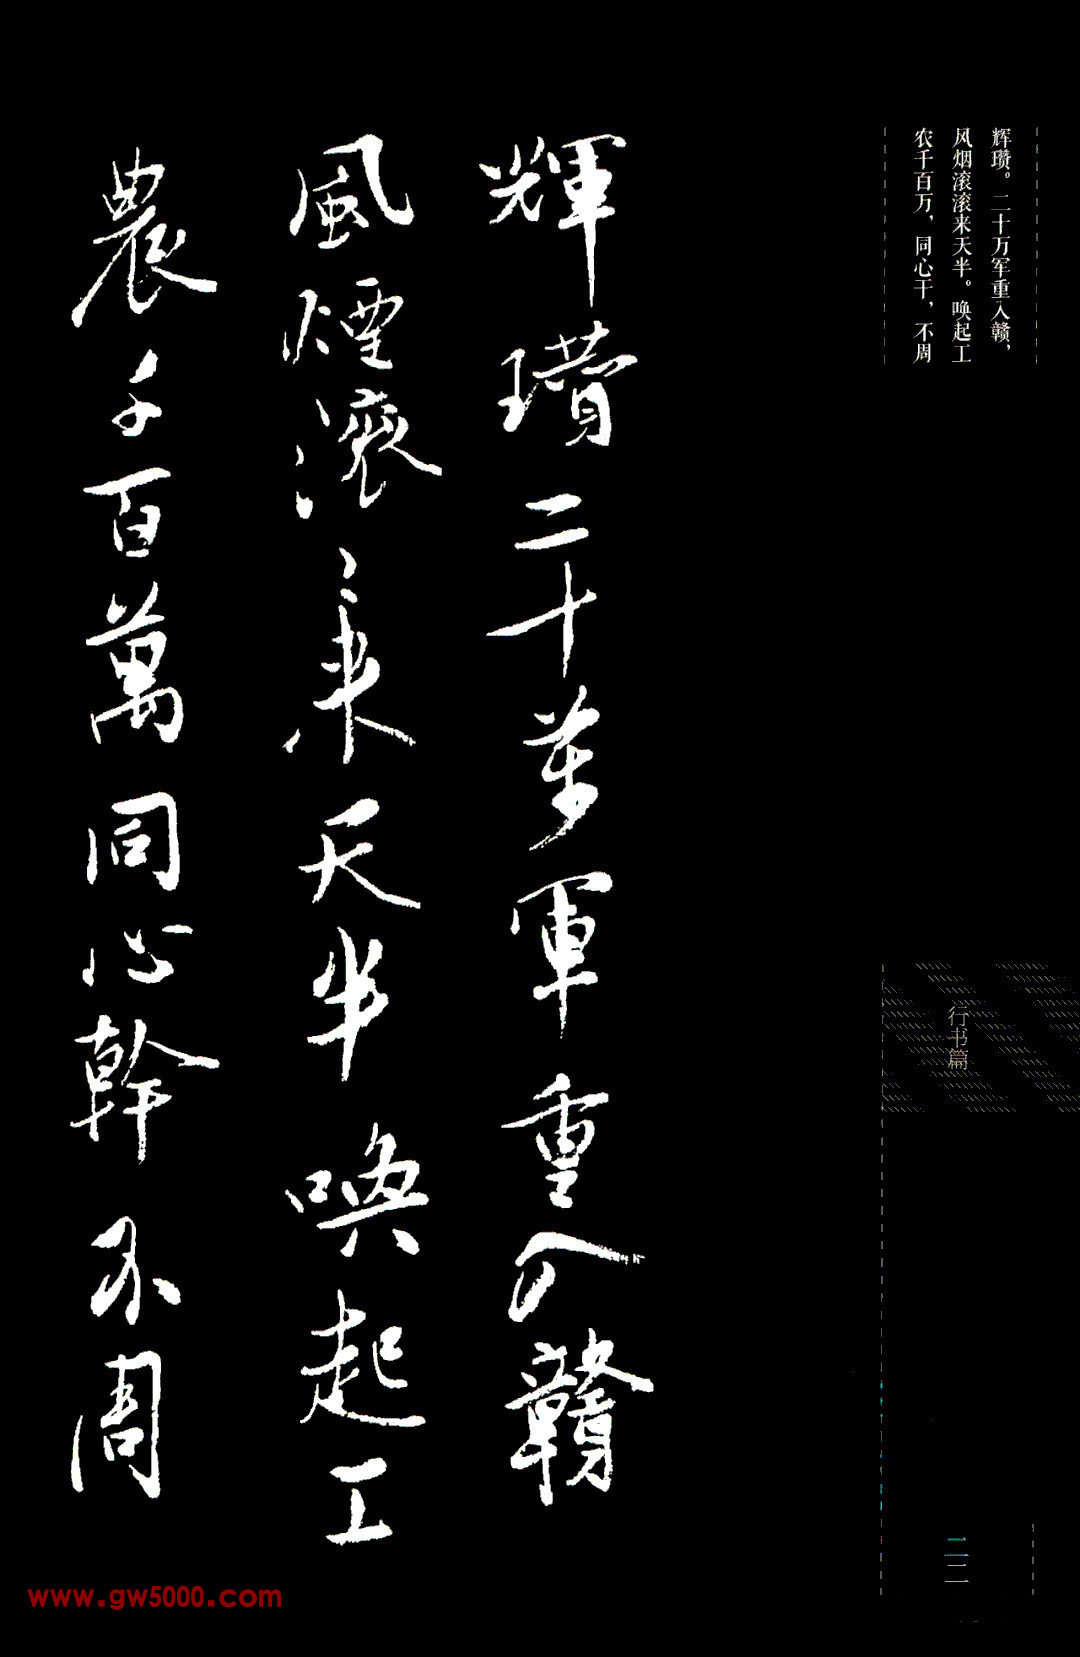 辉瓒。二十万军重入赣，
风烟滚滚来天半。唤起工
农千百万，同心干，不周
輝瓚二十萬軍重入贛
風煙滾〻來天半喚起工
農千百萬同心幹不周
行书篇
www.gw5000.com